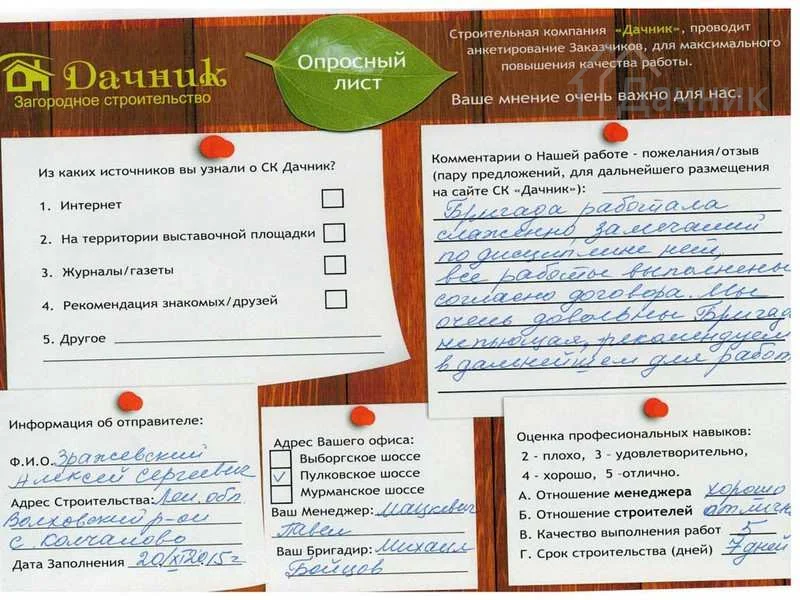 Дачник
Загородное строительство
Опросный
лист
Строительная компания «Дачник», проводит
анкетирование Заказчиков, для максимального
повышения качества работы.
Ваше мнение очень важно для нас.
Дачник
Из каких источников вы узнали о СК Дачник?
1. Интернет
2. На территории выставочной площадки
3. Журналы/газеты
4. Рекомендация знакомых/друзей
5. Другое
Комментарии о Нашей работе - пожелания/отзыв
(пару предложений, для дальнейшего размещения
на сайте СК «Дачник»):
Бригада работала
слаженно замечаний
по дисциплине нет,
все работы выполнены
согласно договора. Мы
очень довольны Бригада
непьющая, рекомендуем
в дальнейшем для работ
Информация об отправителе:
Ф.И.О. Зражевский
Алексей Сергеевич
Адрес Строительства: Лен. обл.
Волховский р-он
с. Колчаново
Дата Заполнения 20/XI 2015г
Адрес Вашего офиса:
Выборгское шоссе
✓ Пулковское шоссе
Мурманское шоссе
Ваш Менеджер: Мацкевич
Павел
Ваш Бригадир: Михаил
Бойцов
Оценка профессиональных навыков:
2 - плохо, 3 - удовлетворительно,
4 - хорошо, 5 -отлично.
А. Отношение менеджера хорошо
Б. Отношение строителей отлично
В. Качество выполнения работ 5
Г. Срок строительства (дней) 7 дней